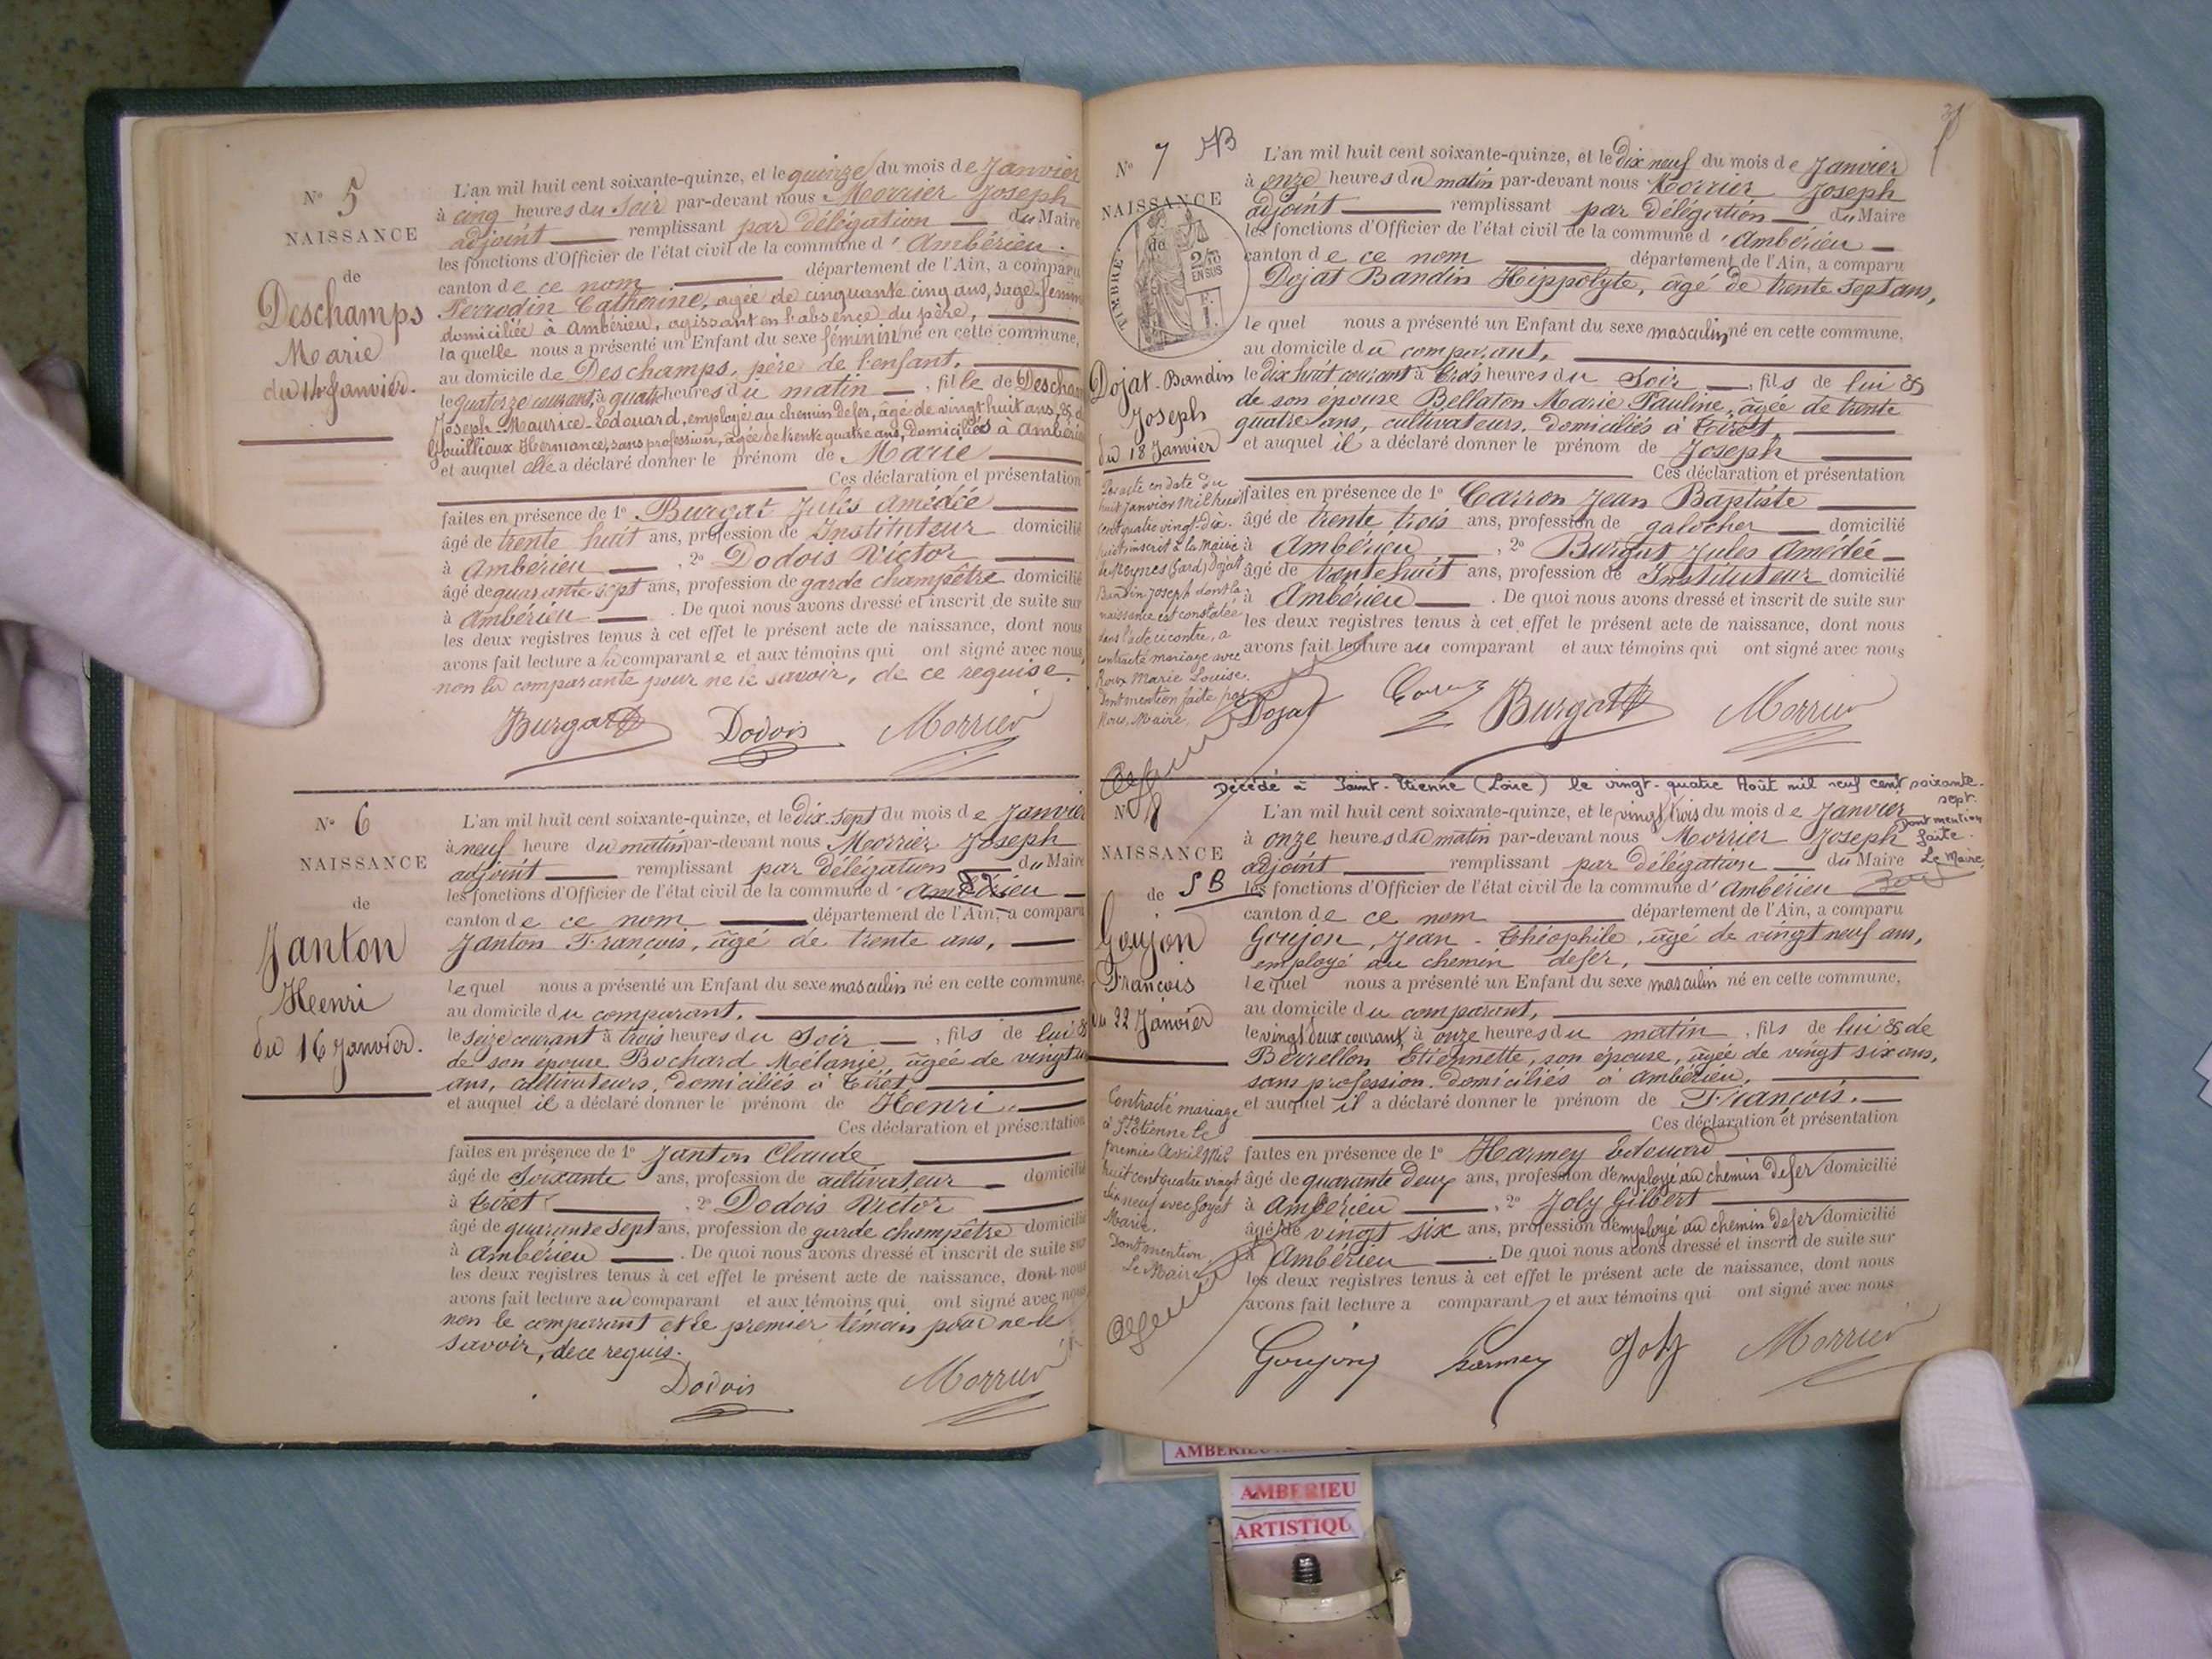 N° 5
NAISSANCE
de
Deschamps
Marie
du 14 Janvier.
L'an mil huit cent soixante-quinze, et le quinze du mois de Janvier
à cinq heures du Soir par-devant nous Morrier Joseph
adjoint remplissant par délégation du Maire
les fonctions d'Officier de l'état civil de la commune d'Ambérieu.
canton de ce nom département de l'Ain, a comparu
Ferrodin Catherine, agée de cinquante cinq ans, sage-femme
domiciliée à Ambérieu, agissant en l'absence du père,
la quelle nous a présenté un Enfant du sexe féminin né en cette commune,
au domicile de Deschamps, père de l'enfant,
le quatorze courant, à quatre heures du matin, fille de Deschamps
Joseph-Maurice-Edouard, employé au chemin de fer, âgé de vingt huit ans, & de
Hermance, sans profession, agée de trente quatre ans, domiciliés à Ambérieu
et auquel elle a déclaré donner le prénom de Marie
Ces déclaration et présentation
faites en présence de 1° Burgat Jules Amédée
âgé de trente huit ans, profession de Instituteur domicilié
à Ambérieu, 2° Dodois Victor
âgé de quarante sept ans, profession de garde champêtre domicilié
à Ambérieu. De quoi nous avons dressé et inscrit de suite sur
les deux registres tenus à cet effet le présent acte de naissance, dont nous
avons fait lecture a la comparante et aux témoins qui ont signé avec nous,
non la comparante pour ne le savoir, de ce requise.
Burgat Dodois Morrier
N° 6
NAISSANCE
de
Janton
Henri
du 16 Janvier.
L'an mil huit cent soixante-quinze, et le dix-sept du mois de Janvier
à neuf heure du matin par-devant nous Morrier Joseph
adjoint remplissant par délégation du Maire
les fonctions d'Officier de l'état civil de la commune d'Ambérieu
canton de ce nom département de l'Ain, a comparu
Janton François, âgé de trente ans,
le quel nous a présenté un Enfant du sexe masculin né en cette commune,
au domicile du comparant,
le seize courant à trois heures du Soir, fils de lui &
de son épouse Bochard Mélanie, âgée de vingt
ans, cultivateurs, domiciliés à Tiret
et auquel il a déclaré donner le prénom de Henri.
Ces déclaration et présentation
faites en présence de 1° Janton Claude
âgé de Soixante ans, profession de cultivateur domicilié
à Tiret, 2° Dodois Victor
âgé de quarante sept ans, profession de garde champêtre domicilié
à Ambérieu. De quoi nous avons dressé et inscrit de suite sur
les deux registres tenus à cet effet le présent acte de naissance, dont nous
avons fait lecture au comparant et aux témoins qui ont signé avec nous
non le comparant et le premier témoin pour ne le
savoir, de ce requis.
Dodois Morrier
N° 7
NAISSANCE
de
TIMBRE
EN SUS
Dojat-Bandin
Joseph
du 18 Janvier
Par acte en date du
huit Janvier Mil huit
cent quatre vingt-dix-
huit inscrit à la Mairie
de Meynes (Gard) Dojat
Bandin Joseph dont la
naissance est constatée
dans l'acte ci contre, a
contracté mariage avec
Roux Marie Louise.
Dont mention faite par
Nous, Maire,
L'an mil huit cent soixante-quinze, et le dix neuf du mois de Janvier
à onze heures du matin par-devant nous Morrier Joseph
adjoint remplissant par délégation du Maire
les fonctions d'Officier de l'état civil de la commune d'Ambérieu
canton de ce nom département de l'Ain, a comparu
Dojat Bandin Hippolyte, âgé de trente sept ans,
le quel nous a présenté un Enfant du sexe masculin né en cette commune,
au domicile du comparant,
le dix huit courant à trois heures du Soir, fils de lui &
de son épouse Bellaton Marie Pauline, âgée de trente
quatre ans, cultivateurs, domiciliés à Tiret,
et auquel il a déclaré donner le prénom de Joseph
Ces déclaration et présentation
faites en présence de 1° Carron Jean Baptiste
âgé de trente trois ans, profession de galocher domicilié
à Ambérieu, 2° Burgat Jules Amédée
âgé de trente huit ans, profession de Instituteur domicilié
à Ambérieu. De quoi nous avons dressé et inscrit de suite sur
les deux registres tenus à cet effet le présent acte de naissance, dont nous
avons fait lecture au comparant et aux témoins qui ont signé avec nous
Dojat Burgat Morrier
Décédé à Saint-Etienne (Loire) le vingt-quatre Août mil neuf cent soixante-
sept.
Dont mention
faite.
Le Maire,
N° 8
NAISSANCE
de SB
Goujon
François
du 22 Janvier
Contracté mariage
à St Etienne le
premier Avril Mil
huit cent quatre vingt
dix neuf avec Goyet
Marie.
Dont mention
Le Maire
L'an mil huit cent soixante-quinze, et le vingt trois du mois de Janvier
à onze heures du matin par-devant nous Morrier Joseph
adjoint remplissant par délégation du Maire
les fonctions d'Officier de l'état civil de la commune d'Ambérieu
canton de ce nom département de l'Ain, a comparu
Goujon, Jean-Théophile, âgé de vingt neuf ans,
employé au chemin de fer,
le quel nous a présenté un Enfant du sexe masculin né en cette commune,
au domicile du comparant,
le vingt deux courant, à onze heures du matin, fils de lui & de
Etiennette, son épouse, âgée de vingt six ans,
sans profession. domiciliés à Ambérieu,
et auquel il a déclaré donner le prénom de François.
Ces déclaration et présentation
faites en présence de 1° Harmey Edouard
âgé de quarante deux ans, profession d'employé au chemin de fer domicilié
à Ambérieu, 2° Joly Gilbert
âgé de vingt six ans, profession d'employé au chemin de fer domicilié
à Ambérieu. De quoi nous avons dressé et inscrit de suite sur
les deux registres tenus à cet effet le présent acte de naissance, dont nous
avons fait lecture a comparant et aux témoins qui ont signé avec nous
Goujon harmey Joly Morrier
AMBERIEU
ARTISTIQU